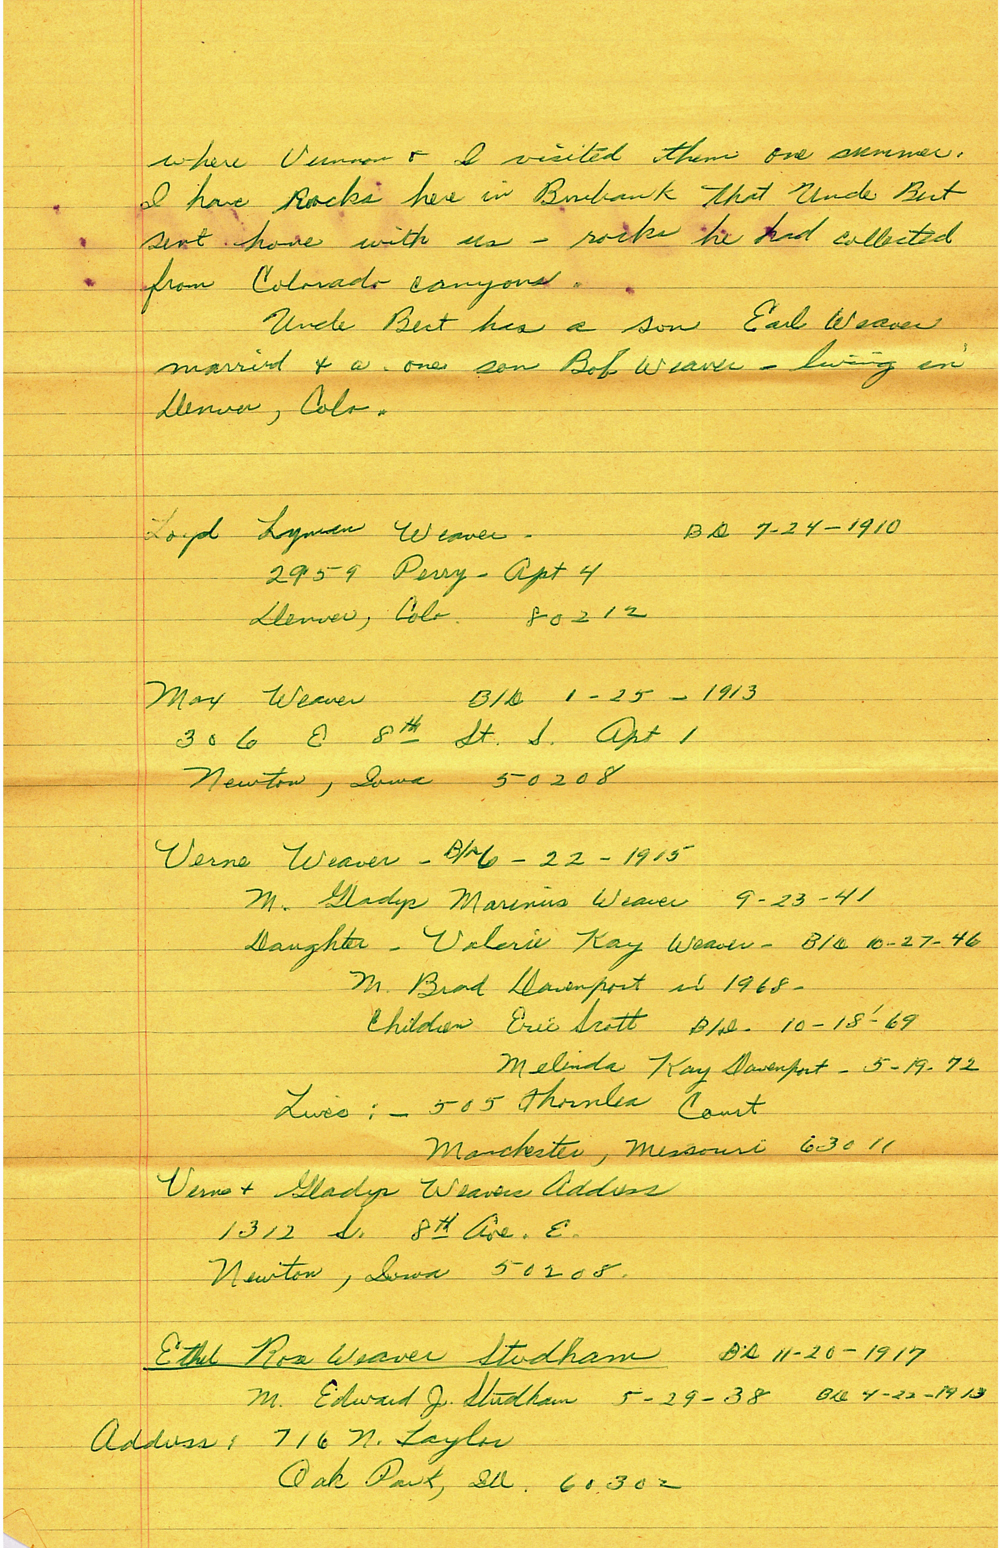 where Vernon & I visited them one summer.
I have Rocks here in Burbank that Uncle Bert
sent home with us - rocks he had collected
from Colorado canyons.
Uncle Bert has a son Earl Weaver
married & a one son Bob Weaver - living in
Denver, Colo.
Loyd Lyman Weaver - BD 7-24-1910
2959 Perry - Apt 4
Denver, Colo. 80212
Max Weaver B/D 1-25-1913
306 E 8th St. S. Apt 1
Newton, Iowa 50208
Verne Weaver - B/D 6-22-1915
M. Gladys Marinus Weaver 9-23-41
Daughter - Valerie Kay Weaver - B/D 10-27-46
M. Brad Davenport in 1968-
Children Eric Scott B/D- 10-18-69
Melinda Kay Davenport - 5-19-72
Lives: - 505 Thornlea Court
Manchester, Missouri 63011
Verne & Gladys Weavers Address
1312 S. 8th Ave. E.
Newton, Iowa 50208.
Ethel Rose Weaver Studham BD 11-20-1917
M. Edward J. Studham 5-29-38 BD 4-22-1913
Address: 716 N. Taylor
Oak Park, Ill. 60302